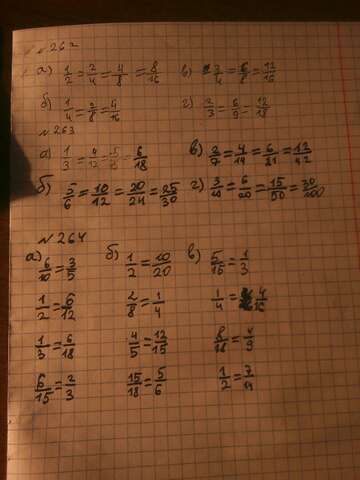 № 262
а) 1/2 = 2/4 = 4/8 = 8/16 в) 3/4 = 6/8 = 12/16
б) 1/4 = 2/8 = 4/16 г) 2/3 = 6/9 = 12/18
№ 263
а) 1/3 = 4/12 = 5/15 = 6/18 в) 2/7 = 4/14 = 6/21 = 12/42
б) 5/6 = 10/12 = 20/24 = 25/30 г) 3/10 = 6/20 = 15/50 = 30/100
№ 264
а) 6/10 = 3/5 б) 1/2 = 10/20 в) 5/15 = 1/3
1/2 = 6/12 2/8 = 1/4 1/4 = 4/16
1/3 = 6/18 4/5 = 12/15 8/18 = 4/9
6/15 = 2/3 15/18 = 5/6 1/2 =